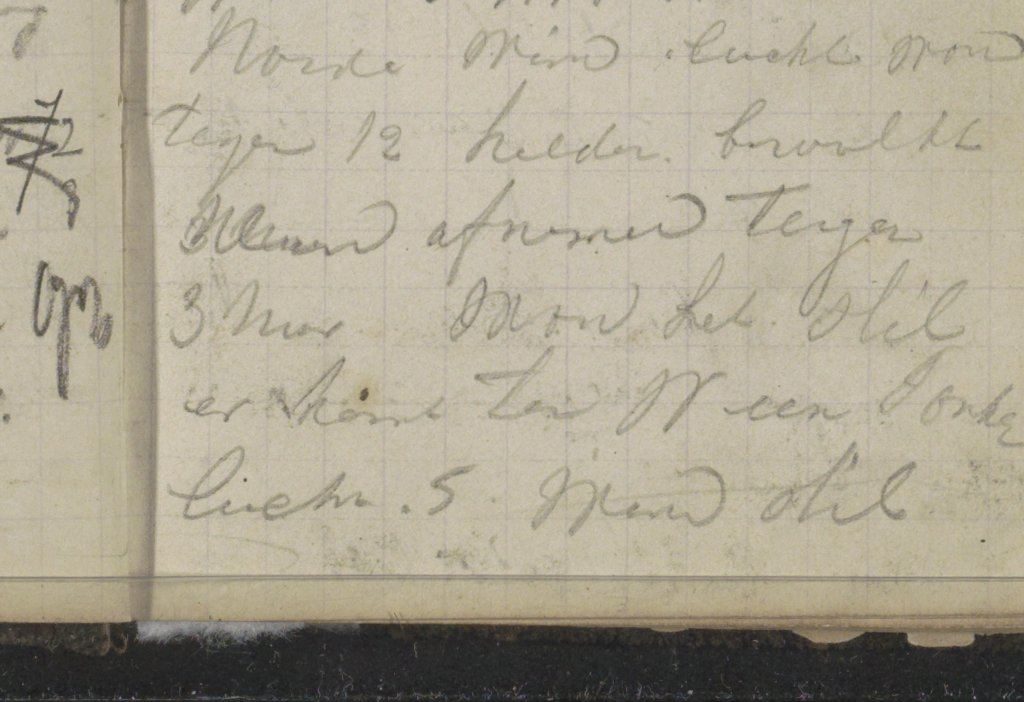 Norde Wind. lucht won
tegen 12 helder. bewolkt
Wind afnemen tegen
3 Uur Won het Stil
er komt ten W een Donke
lucht. 5 Wind stil